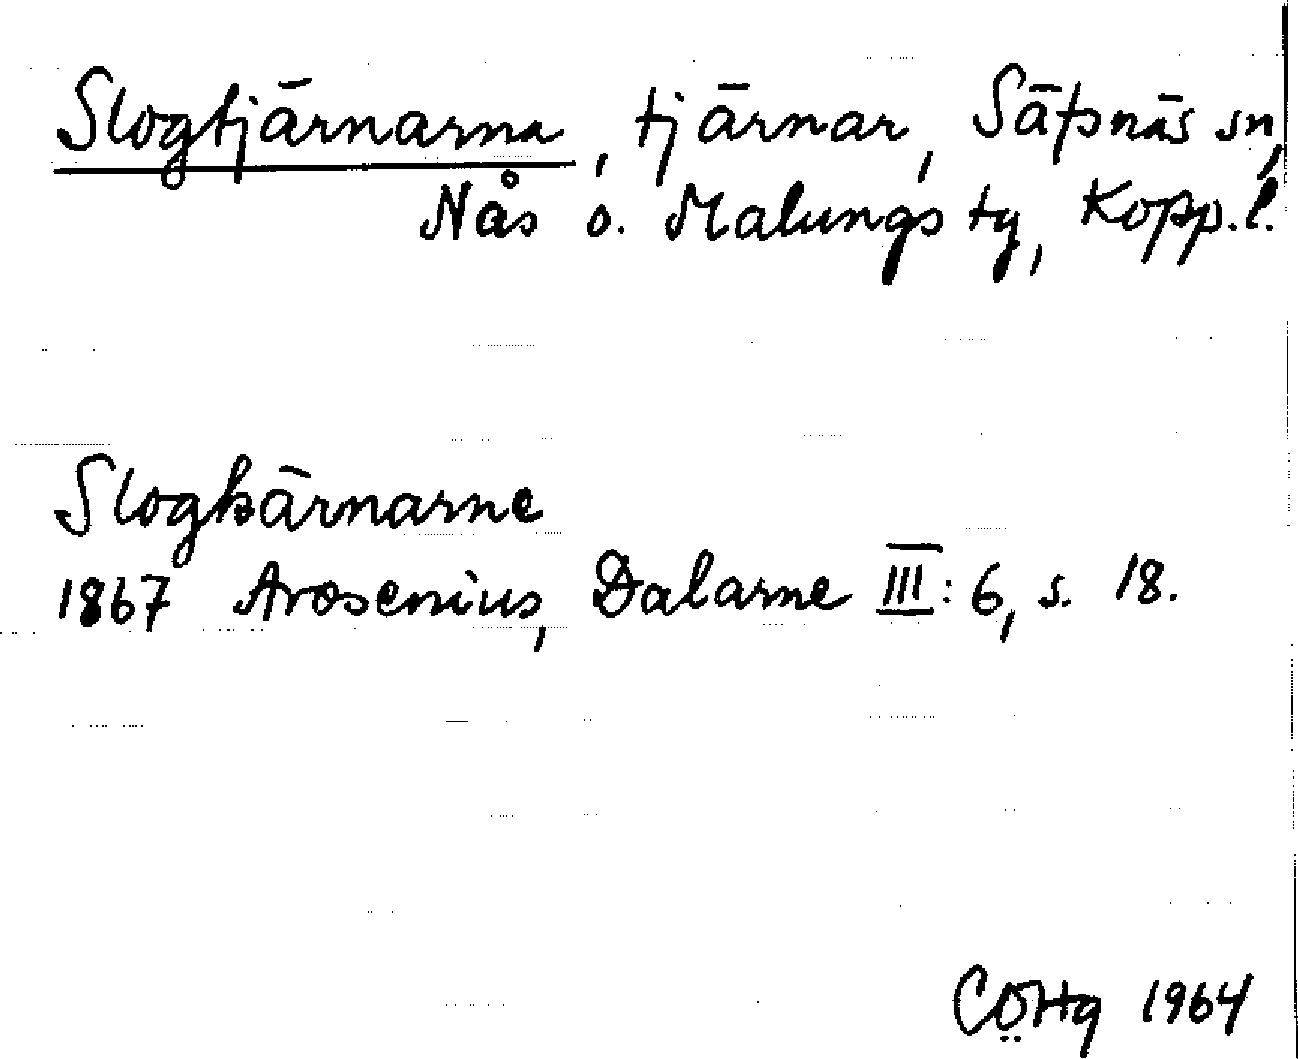 Slogtjärnarna, tjärnar, Säfsnäs sn,
Nås o. Malungs tg, Kopp.l.
Slogkärnarne
1867 Arosenius, Dalarne III:6, s. 18.
1964